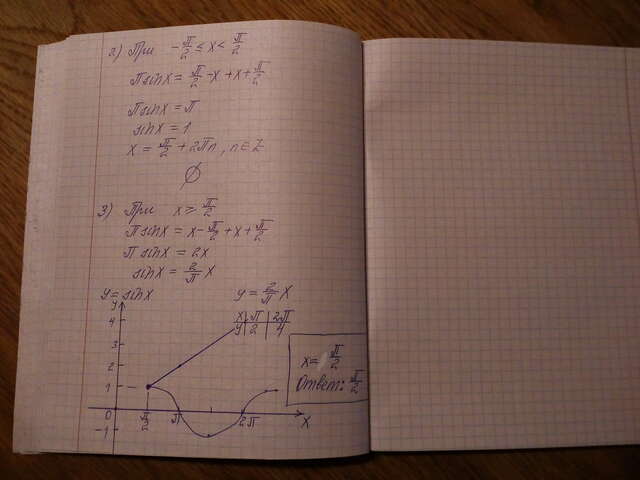 2) При -π/2 ≤ x < π/2
π sinx = π/2 - x + x + π/2
π sinx = π
sinx = 1
x = π/2 + 2πn, n ∈ Z
∅
3) При x ≥ π/2
π sinx = x - π/2 + x + π/2
π sinx = 2x
sinx = 2/π x
y = sinx y = 2/π x
y
x | π | 2π
y | 2 | 4
4
3
2
1
0 π/2 π 2π x
-1
x = π/2
Ответ: π/2